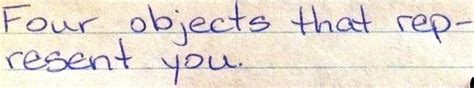 Four objects that rep-
resent you.